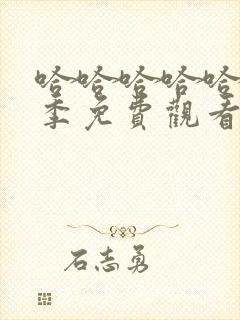 哈哈哈哈哈
季免費觀看
石志勇